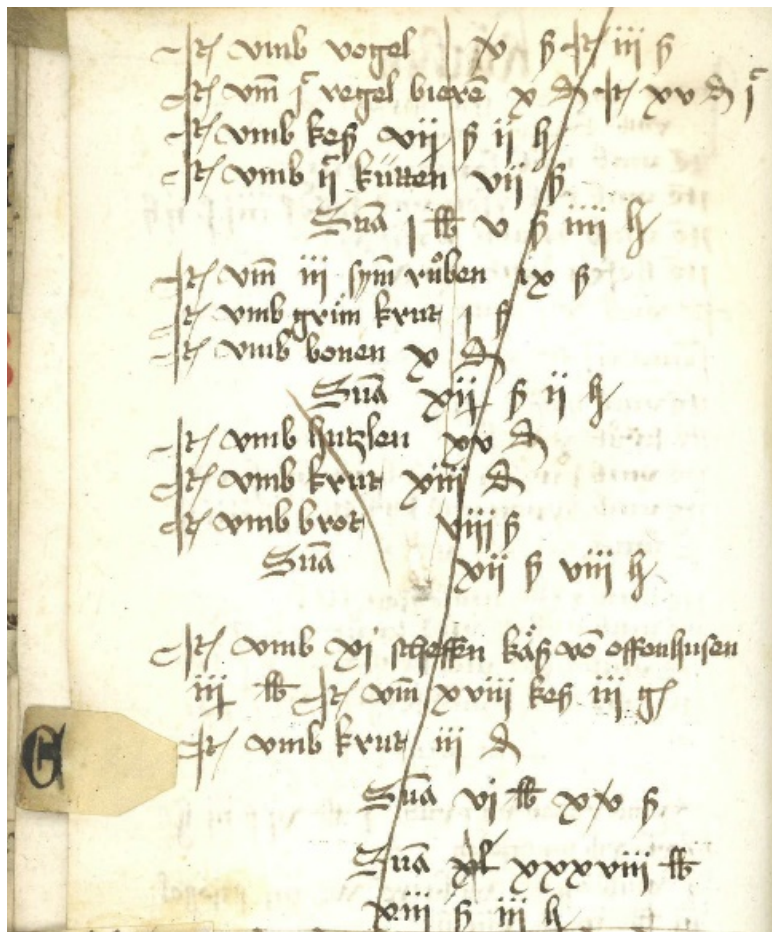 Jt͛ vmb vogel x ß Jt͛ iii ß
Jt͛ vm̄ j vegel bieren̄ x d Jt͛ xv d j
Jt͛ vmb keß vij ß ij h
Jt͛ vmb ij kütten vij ß
Sūa j lb v ß iiij h
Jt͛ vm̄ iij sym̄ ruͦben ix ß
Jt͛ vmb grim krut j ß
Jt͛ vmb bonen x d
Sūa xij ß ij h
Jt͛ vmb hutzlen xv d
Jt͛ vmb krut xiiij d
Jt͛ vmb brot viij ß
Sūa xij ß viij h
Jt͛ vmb xj scheffn käß vō offenhusen
iij lb Jt͛ vm̄ xviii keß iij g
Jt͛ vmb krut iij d
Sūa vj lb xv ß
Sūa xl xxxviii lb
xiii ß iij h
G